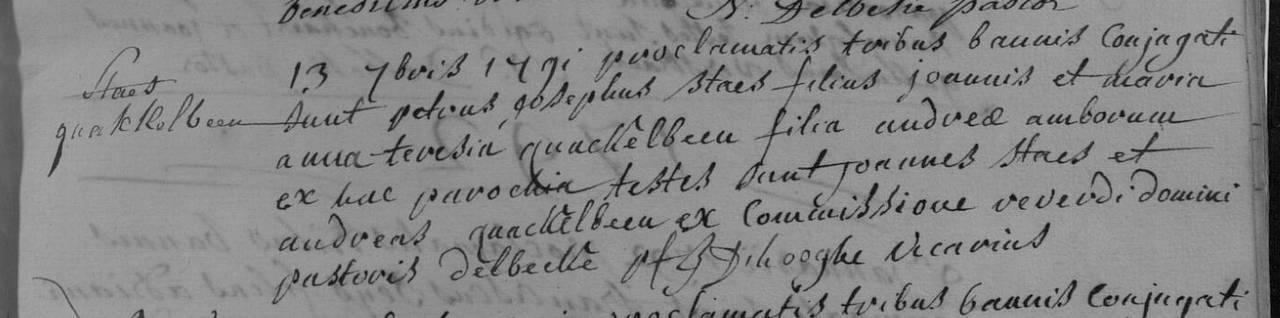 N: Delbeke pastor
Staes
quakkelbeen
13 7bris 1791 proclamatis tribus bannis Conjugati
sunt petrus josephus Staes filius joannis et maria
anna teresia quackelbeen filia andreæ amborum
ex hac parochia testes sunt joannes Staes et
andreas quackelbeen ex Commissione reverdi domini
pastoris delbecke D'hooghe vicarius
proclamatis tribus bannis Conjugati